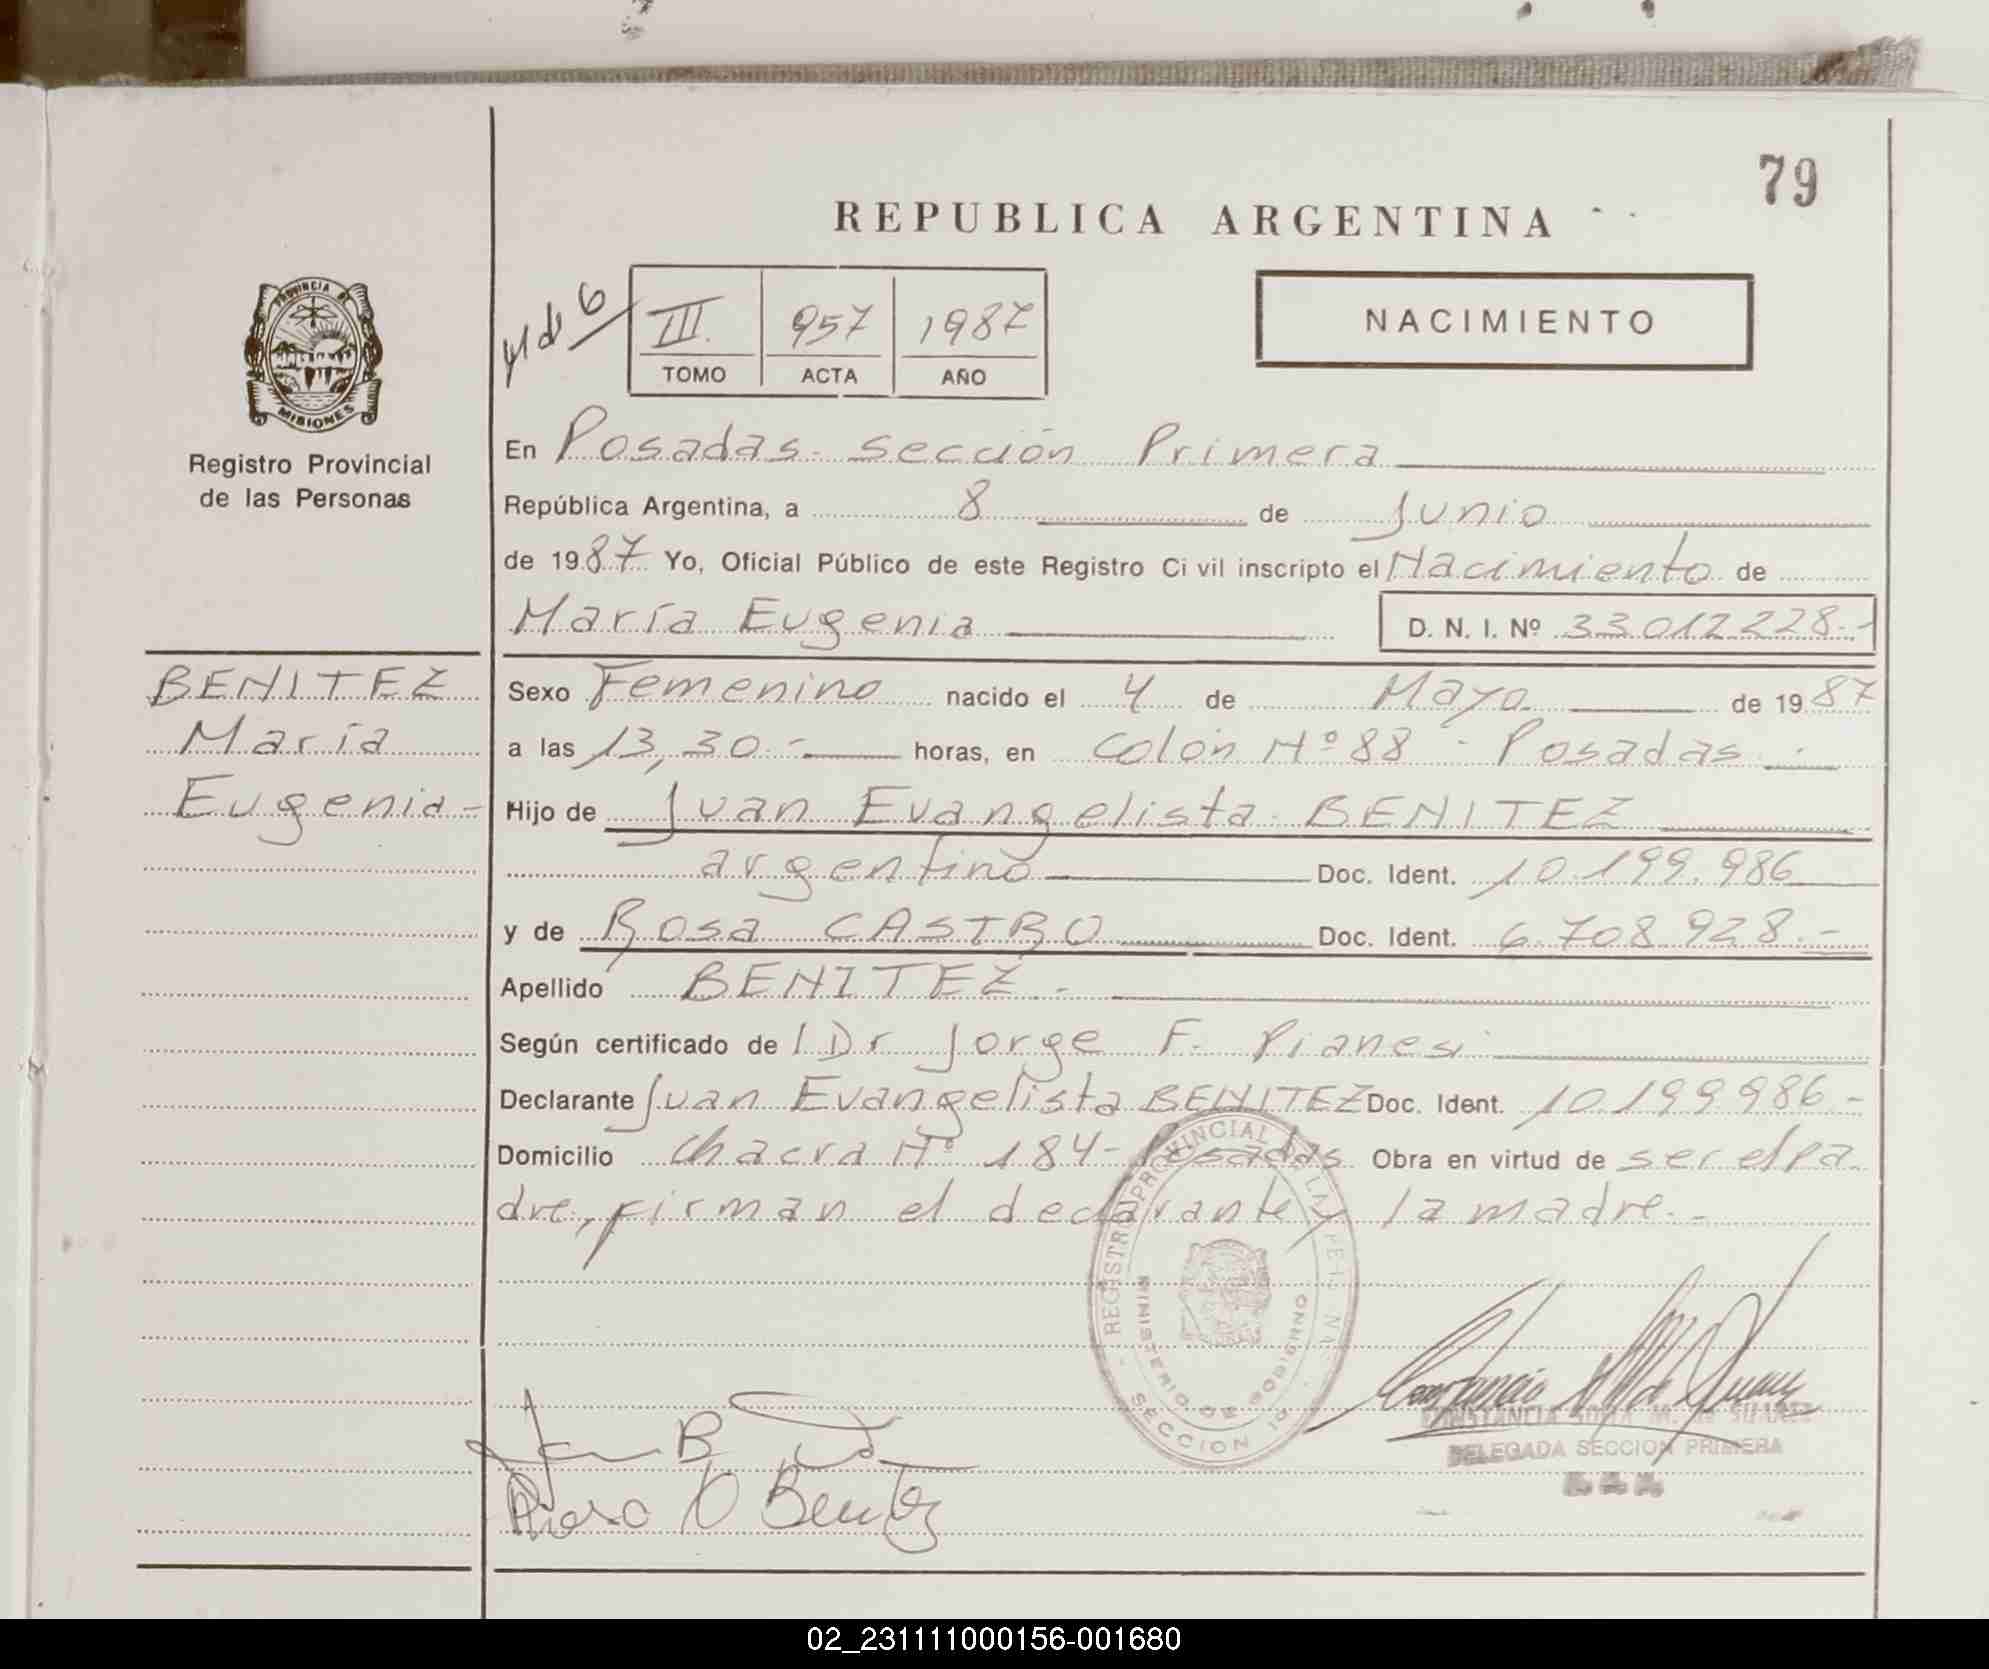 79
REPUBLICA ARGENTINA
PROVINCIA DE
MISIONES
Registro Provincial
de las Personas
III. 957 1987
TOMO ACTA AÑO
NACIMIENTO
En Posadas - sección Primera
República Argentina, a 8 de Junio
de 1987 Yo, Oficial Público de este Registro Ci vil inscripto el Nacimiento de
María Eugenia D. N. I. Nº 33.012.228.-
BENITEZ
María
Eugenia-
Sexo Femenino nacido el 4 de Mayo de 1987
a las 13,30.- horas, en colón Nº 88 - Posadas
Hijo de Juan Evangelista BENITEZ
argentino Doc. Ident. 10.199.986
y de Rosa CASTRO Doc. Ident. 6.708.928.-
Apellido BENITEZ.-
Según certificado de l Dr Jorge F. Pianesi
Declarante Juan Evangelista BENITEZ Doc. Ident. 10.199.986-
Domicilio chacra Nº 184- Posadas Obra en virtud de ser el pa
dre, firman el declarante y la madre.-
REGISTRO PROVINCIAL DE LAS PERSONAS
MINISTERIO DE GOBIERNO
SECCION 1ª
CONSTANCIA M. de SUAREZ
DELEGADA SECCION PRIMERA
Rosa Benitez
02_231111000156-001680